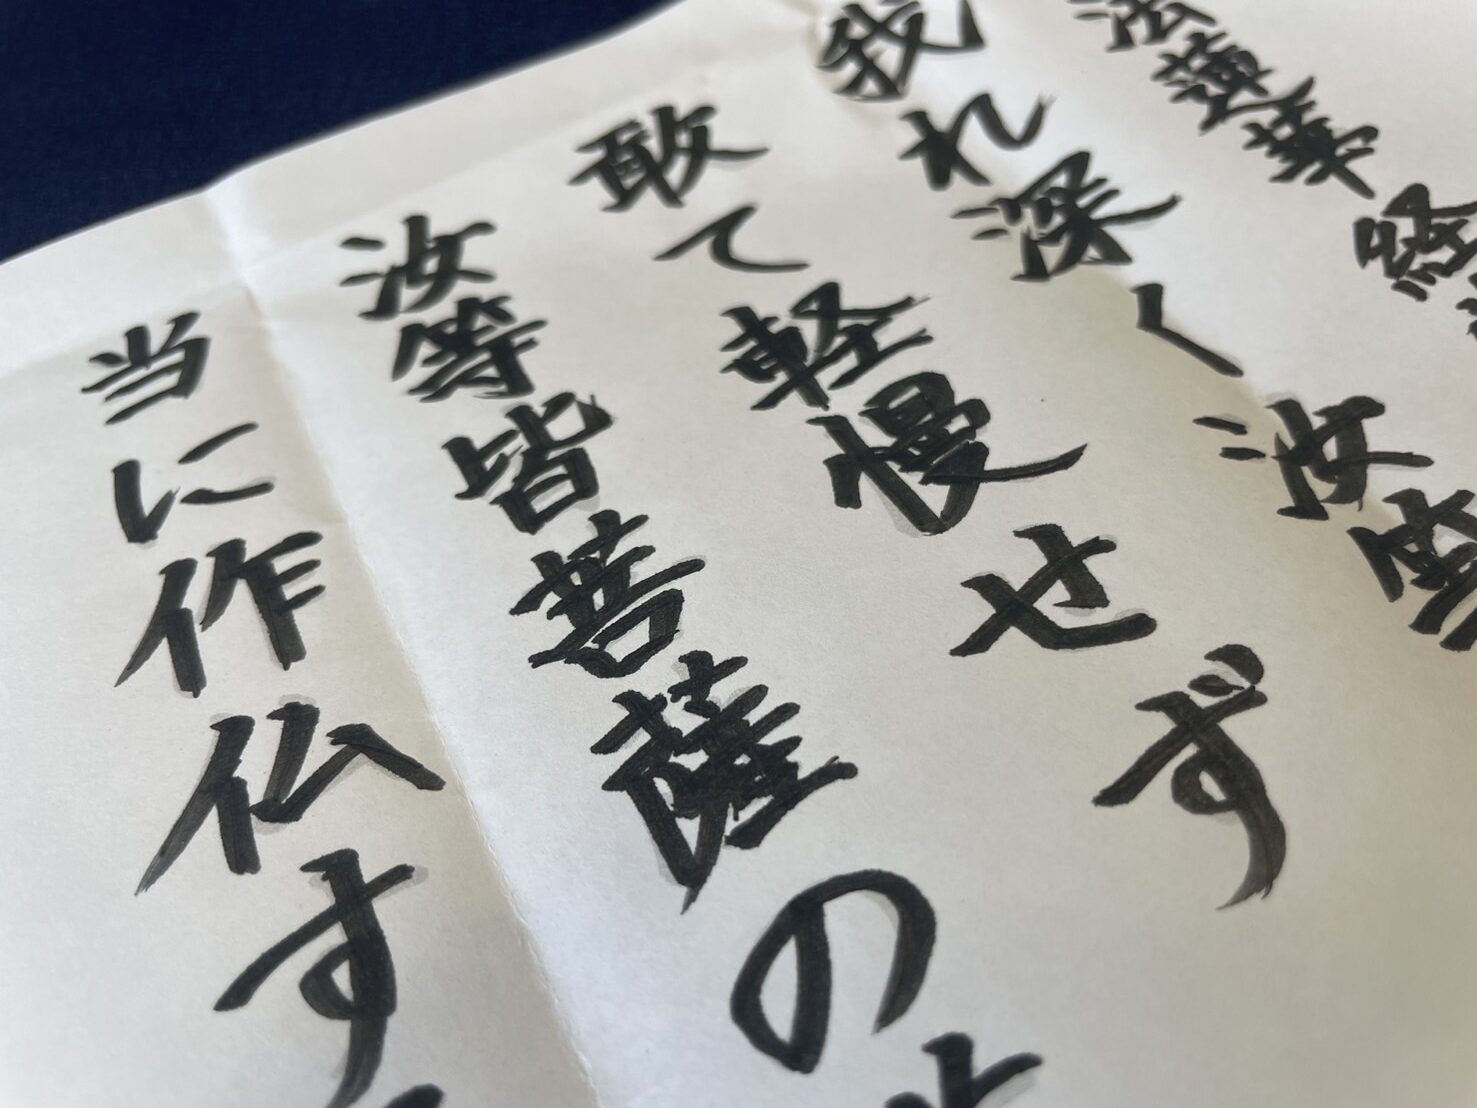 法蓮華経
我れ深く汝等
敢て軽慢せず
汝等皆菩薩の
当に作仏す